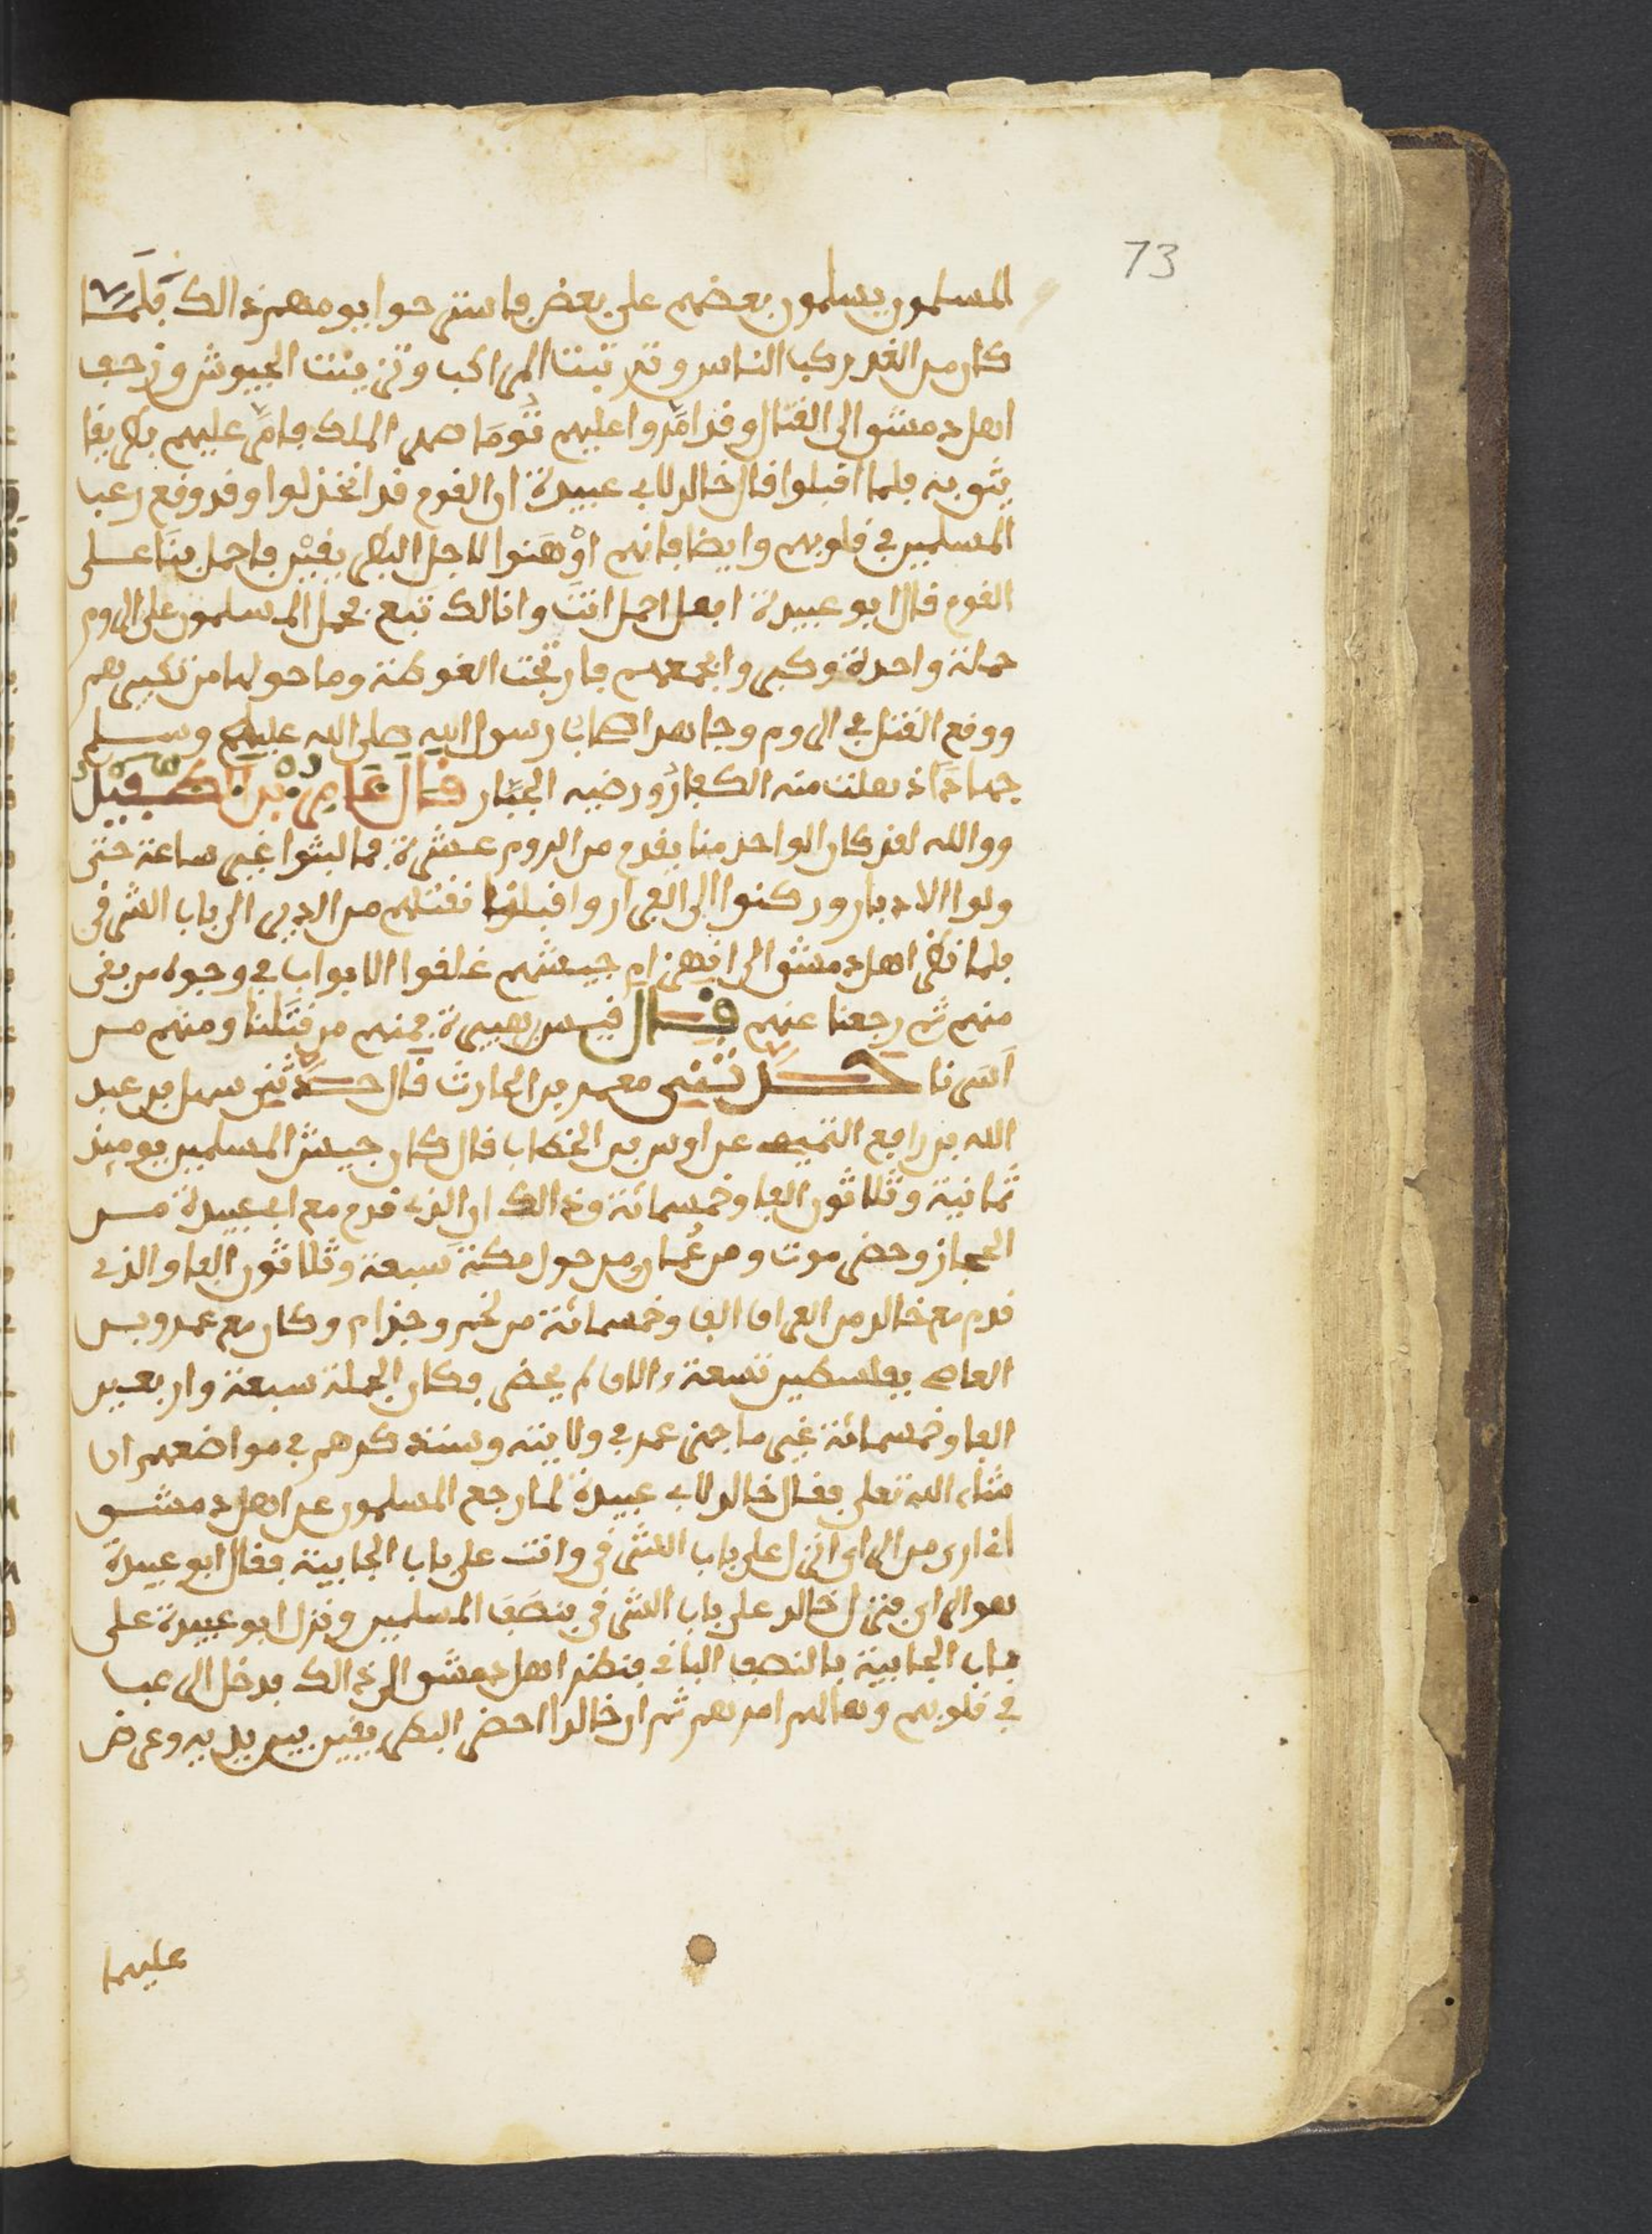 73
المسلمون يسلمون بعضهم على بعض فاستراحوا يومهم ذالك فلما
كان من الغد ركب الناس وترتبت المراكب وتزينت الجيوش وزحف
اهل دمشق الى القتال وقد امّروا عليهم تُومَا صهر الملك فامّر عليهم بطريفا
يثق به فلما اقبلوا قال خالد لابي عبيدة ان القوم قد انخذلوا وقد وقع رعب
المسلمين في قلوبهم وايضا فانهم اوْهَنوا لاجل البطريقيْن فاحمل بنَا على
القوم قال ابو عبيدة افعل احمل انتَ وانا لك تبع فحمل المسلمون على الروم
حملة واحدة وكبروا باجمعهم فارتجت الغوطة وما حولها من تكبيرهم
ووقع القتل في الروم وجاهد اصحاب رسول الله صلى الله عليه وسلم
جهادًا ذهلت منه الكفار ورضيه الجبّار قال عامر بن الطفيل
ووالله لقد كان الواحد منا يقدم من الروم عشرة فما لبثوا غير ساعة حتى
ولوا الادبار وركنوا الى الفرار واقبلنا نقتلهم من الدير الى باب الشرقي
فلما نظر اهل دمشق الى انهزام جيشهم غلقوا الابواب في وجوه من بقى
منهم ثم رجعنا عنهم قال قيس بن هبيرة فمنهم من قتَلنا ومنهم من
اَسرنا حدثني معمر بن الحارث قال حدثني سهل بن عبد
الله بن رافع التميمي عن اوس بن الخطاب قال كان جيش المسلمين يوميذ
ثمانية وثلاثون الفا وخمسمائة وذالك ان الذي قدم مع ابي عبيدة من
الحجاز وحضرموت ومن عُمان ومن حول مكة سبعة وثلاثون الفا والذي
قدم مع خالد من العراق الف وخمسمائة من لخم وجذام وكان مع عمرو بن
العاص بفلسطين تسعة ءالاف لم يحضر فكان الجملة سبعة واربعين
الفا وخمسمائة غير ما جهز عمر في ولايته وسنذكرهم في مواضعهم ان
شاء الله تعلى فقال خالد لابي عبيدة لما رجع المسلمون عن اهل دمشق
اني ارى من الراي انزل على باب الشرقي وانت على باب الجابية فقال ابو عبيدة
هو الراي فنزل خالد على باب الشرقي بنصَف المسلمين ونزل ابو عبيدة على
باب الجابية بالنصف الباقي فنظر اهل دمشق الى ذالك فدخل الرعب
في قلوبهم وهالهم امرهم ثم ان خالدا احضر البطريقين بين يديه وعرض
عليهما